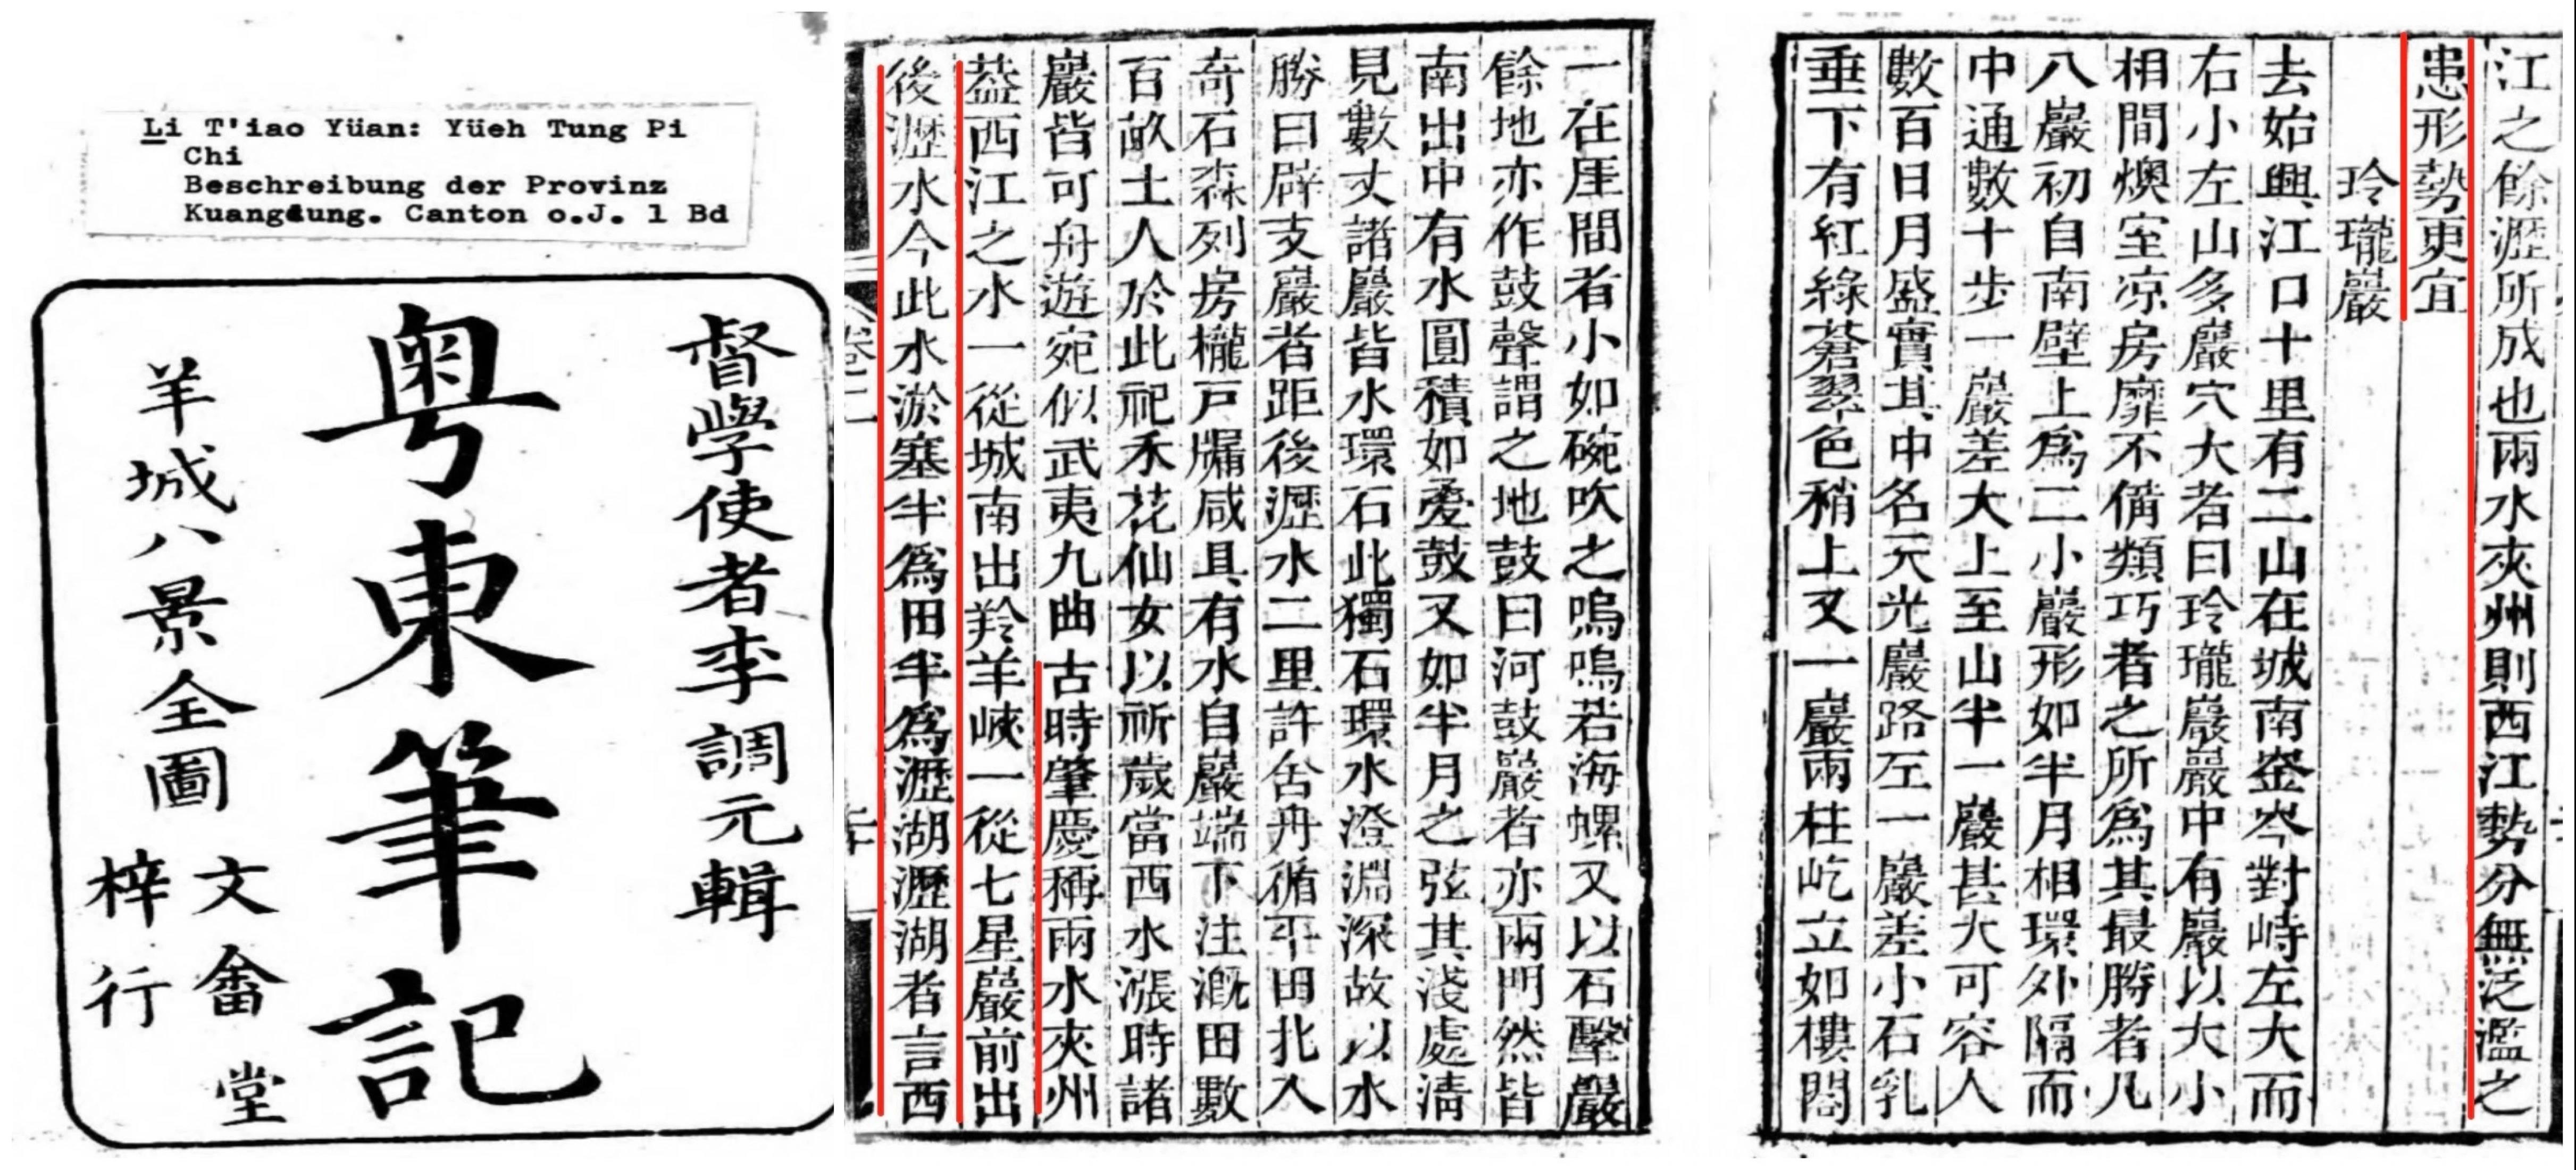 Li T'iao Yüan: Yüeh Tung Pi
Chi
Beschreibung der Provinz
Kuangdung. Canton o.J. 1 Bd
督學使者李調元輯
粤東筆記
羊城八景全圖
文畬堂
梓行
一在厓間者小如碗吹之嗚嗚若海螺又以石擊巖
餘地亦作鼓聲謂之地鼓曰河鼓巖者亦兩門然皆
南出中有水圓積如覆鼓又如半月之弦其淺處清
見數丈諸巖皆水環石此獨石環水澄淵深故以水
勝曰辟支巖者距後瀝水二里許舍舟循平田北入
奇石森列房櫳戸牖咸具有水自巖端下注溉田數
百畝土人於此祀禾花仙女以祈歲當西水漲時諸
巖皆可舟遊宛似武夷九曲古時肇慶稱兩水夾州
葢西江之水一從城南出羚羊峽一從七星巖前出
後瀝水今此水淤塞半爲田半爲瀝湖瀝湖者言西
江之餘瀝所成也兩水夾州則西江勢分無泛濫之
患形勢更宜
玲瓏巖
去始興江口十里有二山在城南崟岑對峙左大而
右小左山多巖穴大者曰玲瓏巖巖中有巖以大小
相間燠室凉房靡不備類巧者之所爲其最勝者凡
八巖初自南壁上爲二小巖形如半月相環外隔而
中通數十步一巖差大上至山半一巖甚大可容人
數百日月盛實其中名元光巖路左一巖差小石乳
垂下有紅綠蒼翠色稍上又一巖兩柱屹立如樓閣